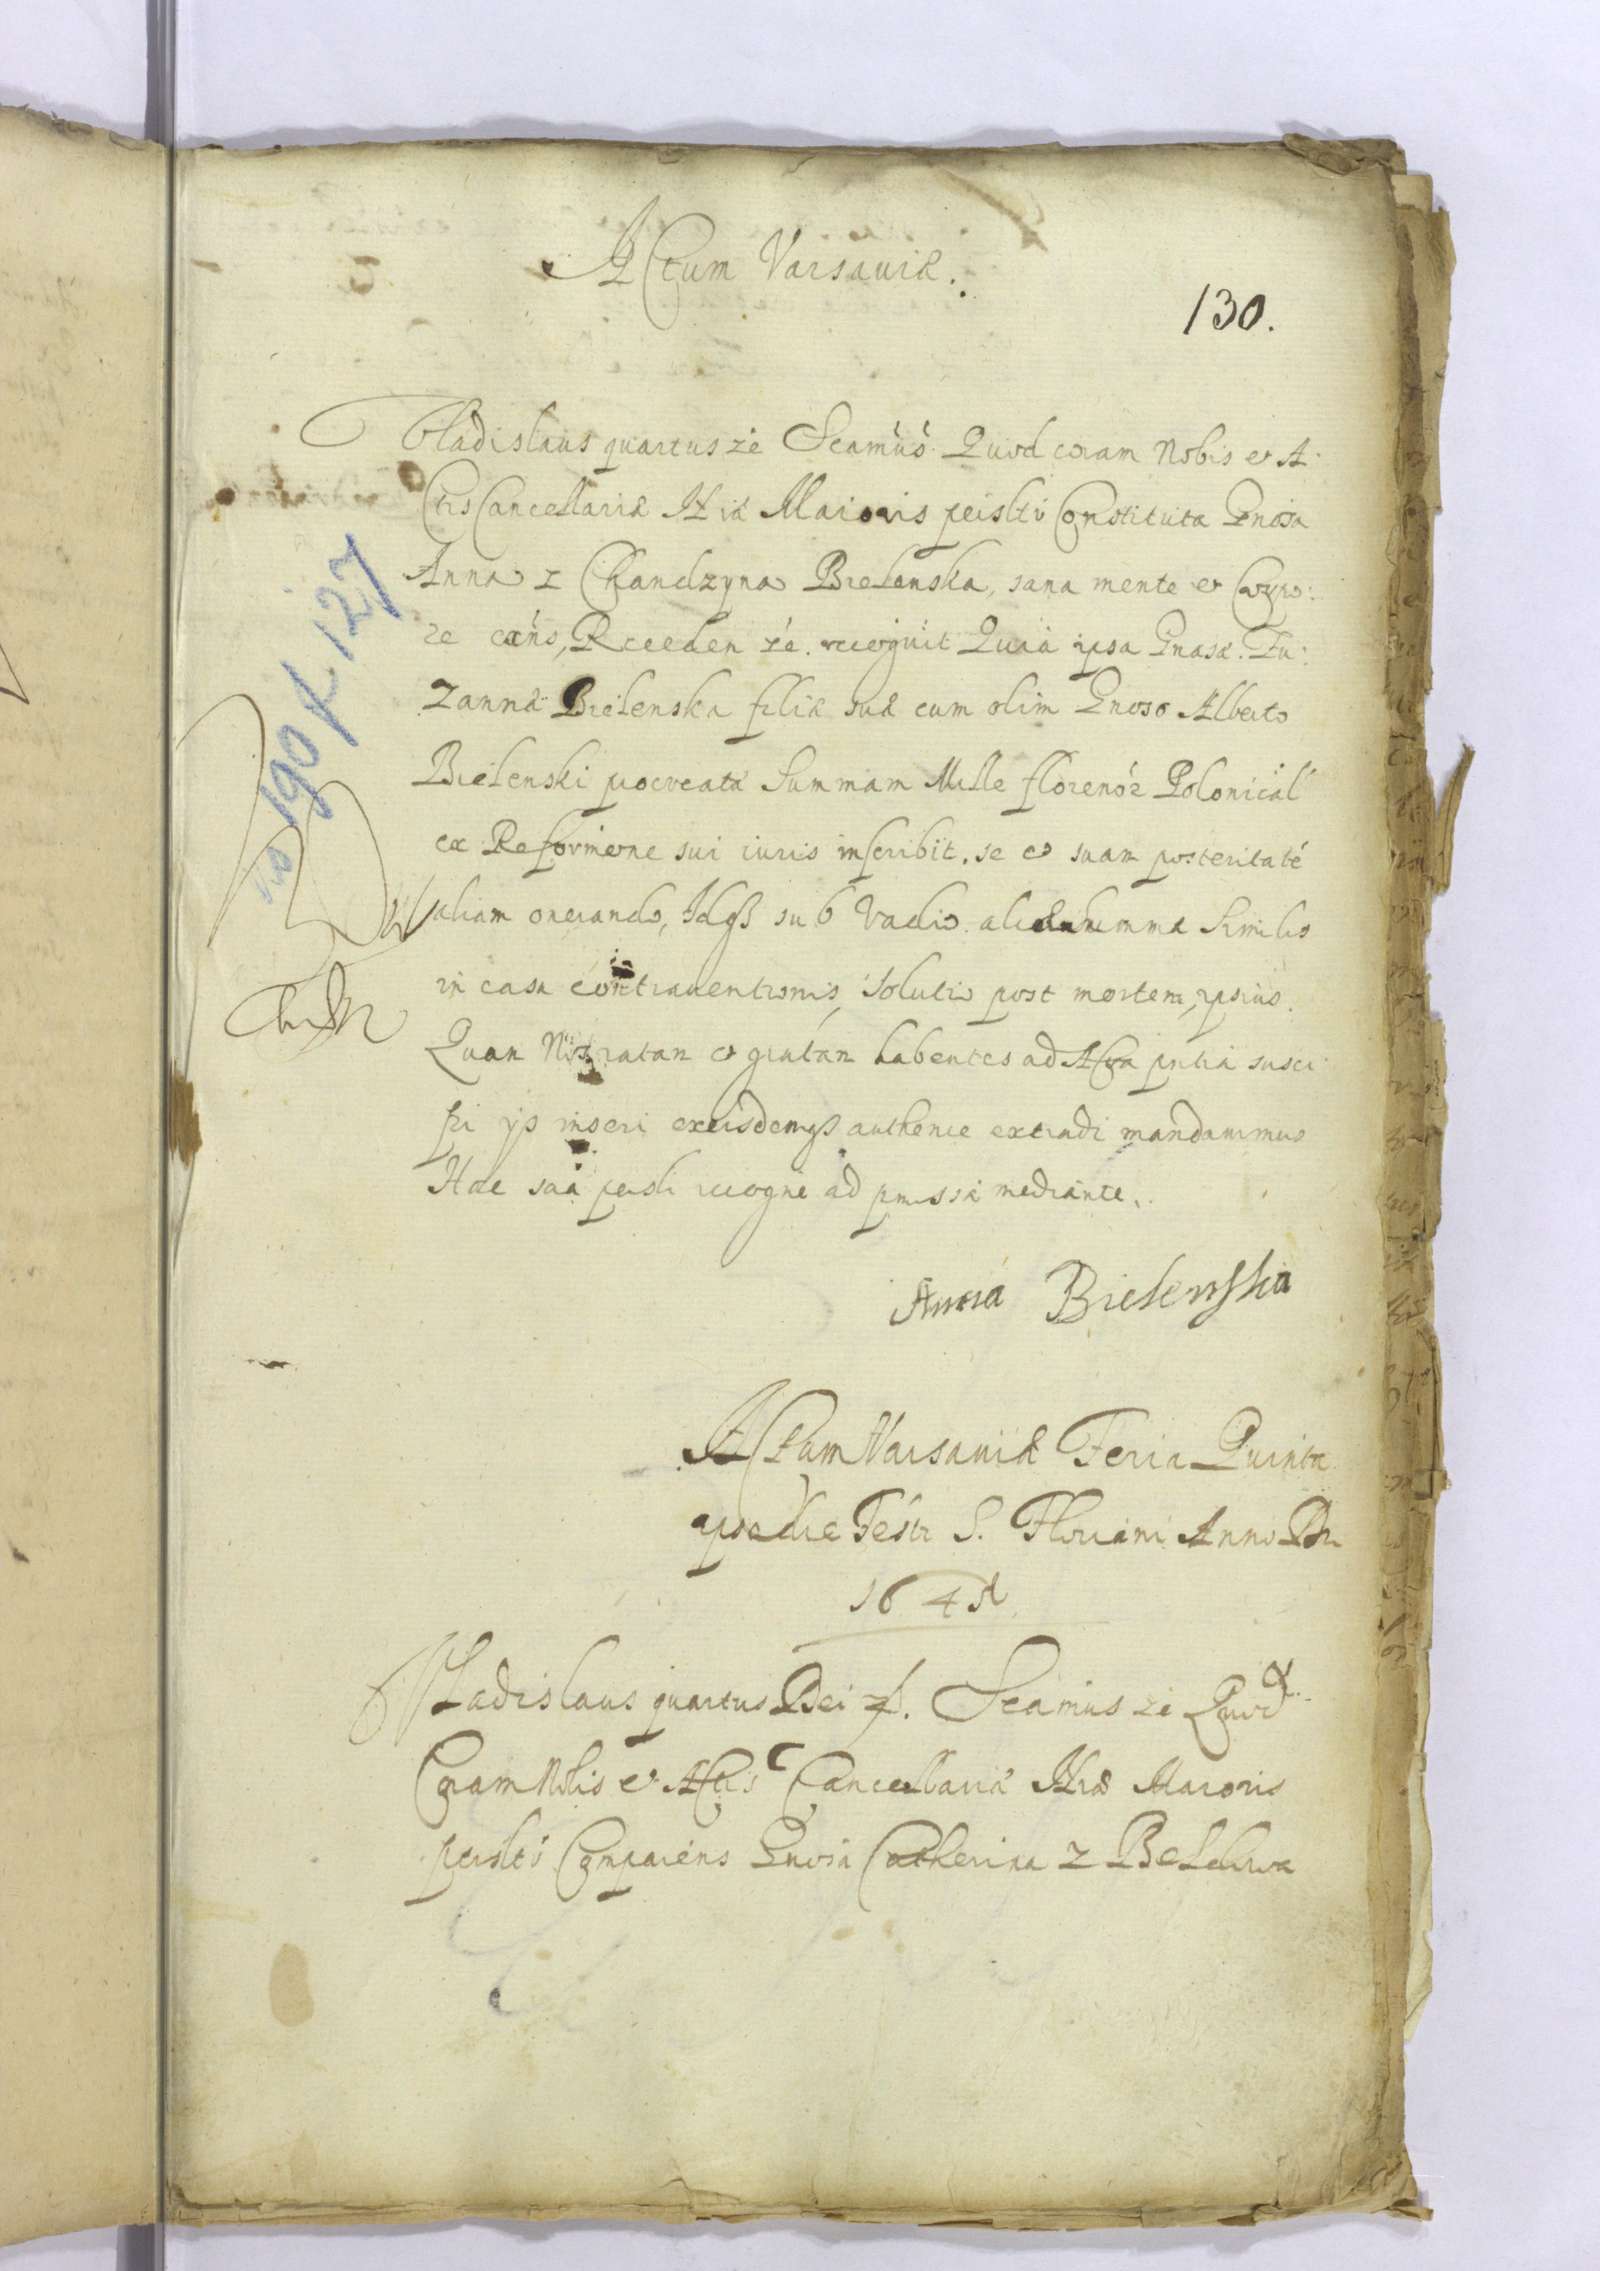 Actum Varsauiæ.
130.
Vladislaus quartus &c Scamus Quod coram Nobis et A
ctis Cancellariæ Nræ Maioris prsltr Constituta Gnosa
Anna z Chandzyna Bielenska, sana mente et Corpo:
re exns, Reeden &c. recognit Quia ipsa Gnasæ. Zu:
zannæ Bielenska filiæ suæ cum olim Gnoso Alberto
Bielenski procreatæ Summam Mille florenor Polonical
ex Reformone sui iuris inscribit. se et suam posteritatē
aliam onerando, Idqß sub Vadio simili
in casu contrauentionis, soluti post mortem, ipsius.
Quam Nos ratam et gratam habentes ad Acta pntia susci
pi ijs inseri exeisdemqß authence extradi mandauimus
Hac sua prsli recogne ad pmissa mediante.
Anna Bielenska
Actum Varsauiæ Feria Quinta
ipso die Festi S. Floriani Anno Dni
164
Vladislaus quartus Dei &. Scamus &c Quod
Coram Nobis et Actis Cancellariæ Nræ Maioris
prsltr Comparens Gnosa Catherina z
no 190 k 127